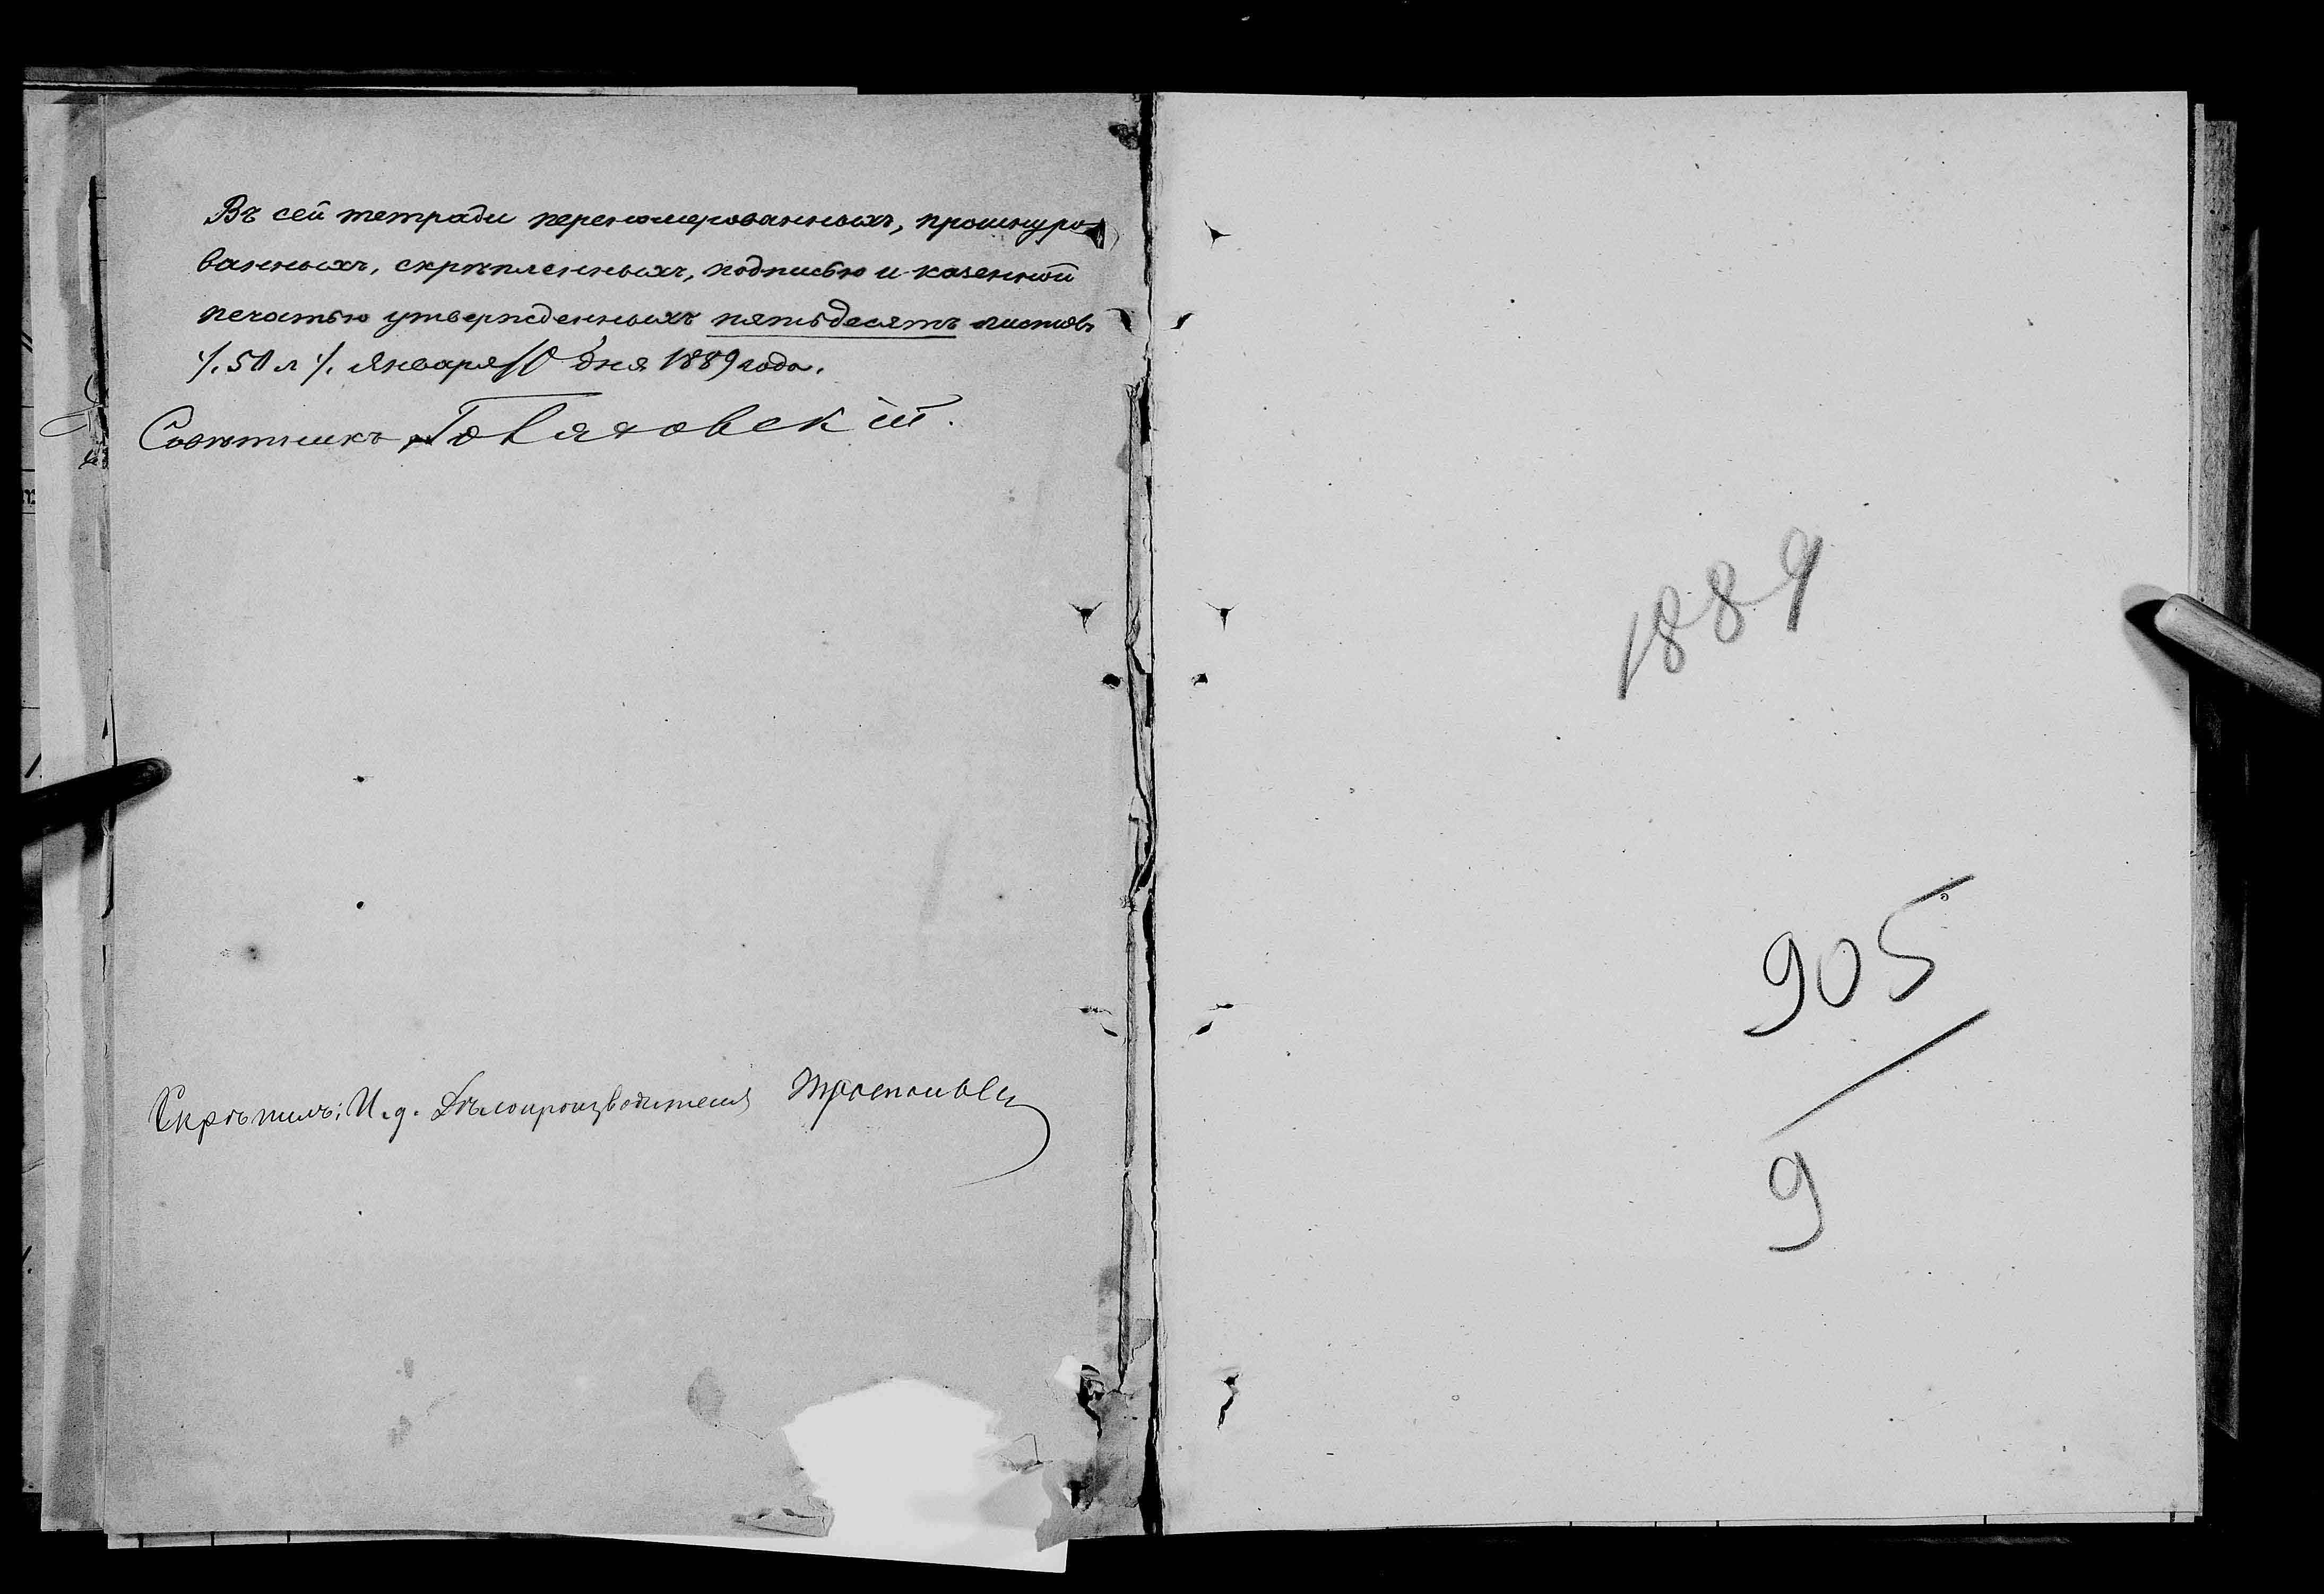 Въ сей тетради перенумерованныхъ, прошнуро-
ванныхъ, скрѣпленныхъ, подписью и казенной
печатью утвержденныхъ пятьдесятъ листовъ
./.50 л ./. Января 10 дня 1889 года.
Совѣтникъ
Скрѣпилъ: И. д. Дѣлопроизводителя
1889
905
9